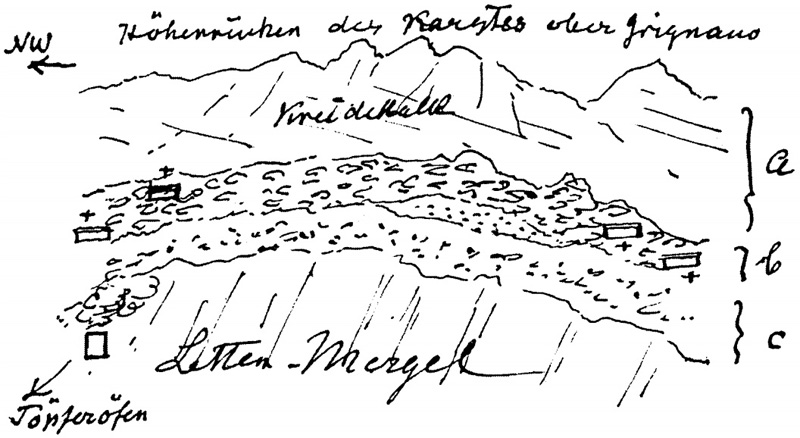 Höhenrücken des Karstes ober Grignano
NW
Kreidekalk
a
b
c
Letten-Mergel
Töpferöfen